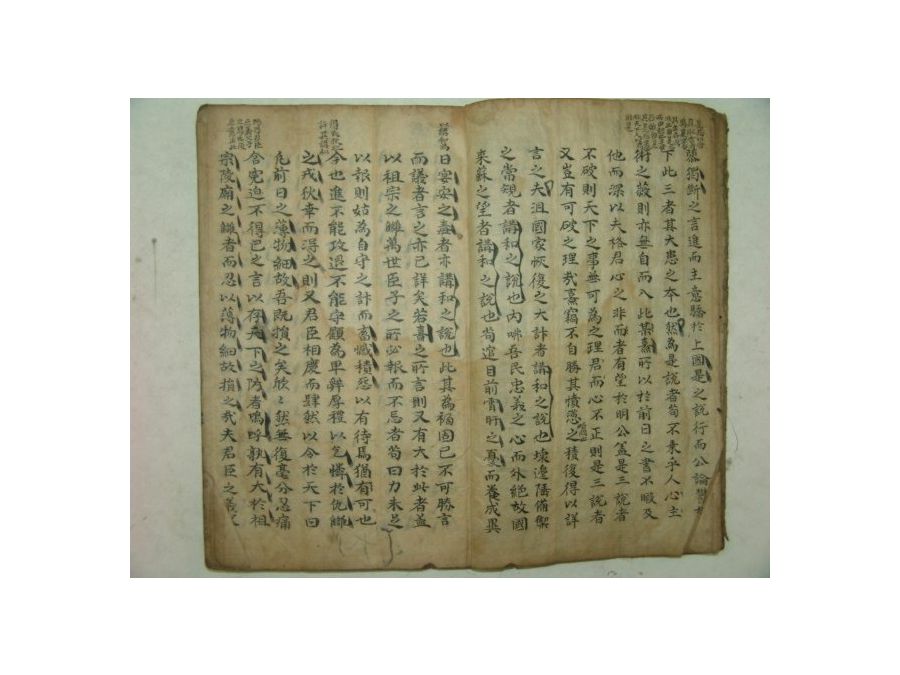 獨斷之言進而主意驕於上國是之說行而公論鬱於
下此三者其大患之本也然為是說者苟不乘乎人心主
術之蔽則亦無自而入此熹所以於前日之書不暇及
他而深以夫格君心之非而者有望於明公蓋是三說者
不破則天下之事無可為之理君而心不正則是三說者
又豈有可破之理哉熹竊不自勝其憤懣之積後得以詳
言之夫沮國家恢復之大計者講和之說也壞邊陲備禦
之常規者講和之說也內咈吾民忠義之心而外絕故國
來蘇之望者講和之說也苟逭目前宵旰之憂而養成異
日宴安之毒者亦講和之說也此其為禍固已不可勝言
而議者言之亦已詳矣若熹之所言則又有大於此者蓋
以祖宗之讎萬世臣子之所必報而不忘者苟曰力未足
以報則姑為自守之計而畜憾積怨以有待焉猶有可也
今也進不能攻退不能守顧為卑辭厚禮以乞憐於仇讎
之戎狄幸而得之則又君臣相慶而肆然以令於天下曰
凡前日之薄物細故吾既捐之矣欣々然無復毫分忍痛
含冤迫不得已之言以存天下之防者嗚呼孰有大於祖
宗陵廟之讎者而忍以薄物細故捐之哉夫君臣之義